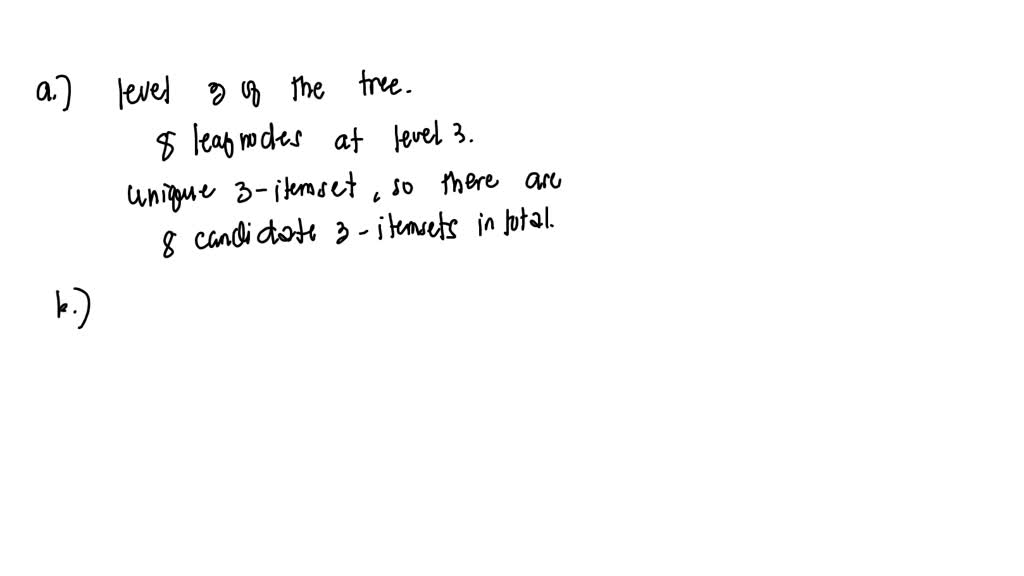 a.) level 3 of the tree.
8 leaf nodes at level 3.
unique 3-itemset, so there are
8 candidate 3-itemsets in total.
b.)